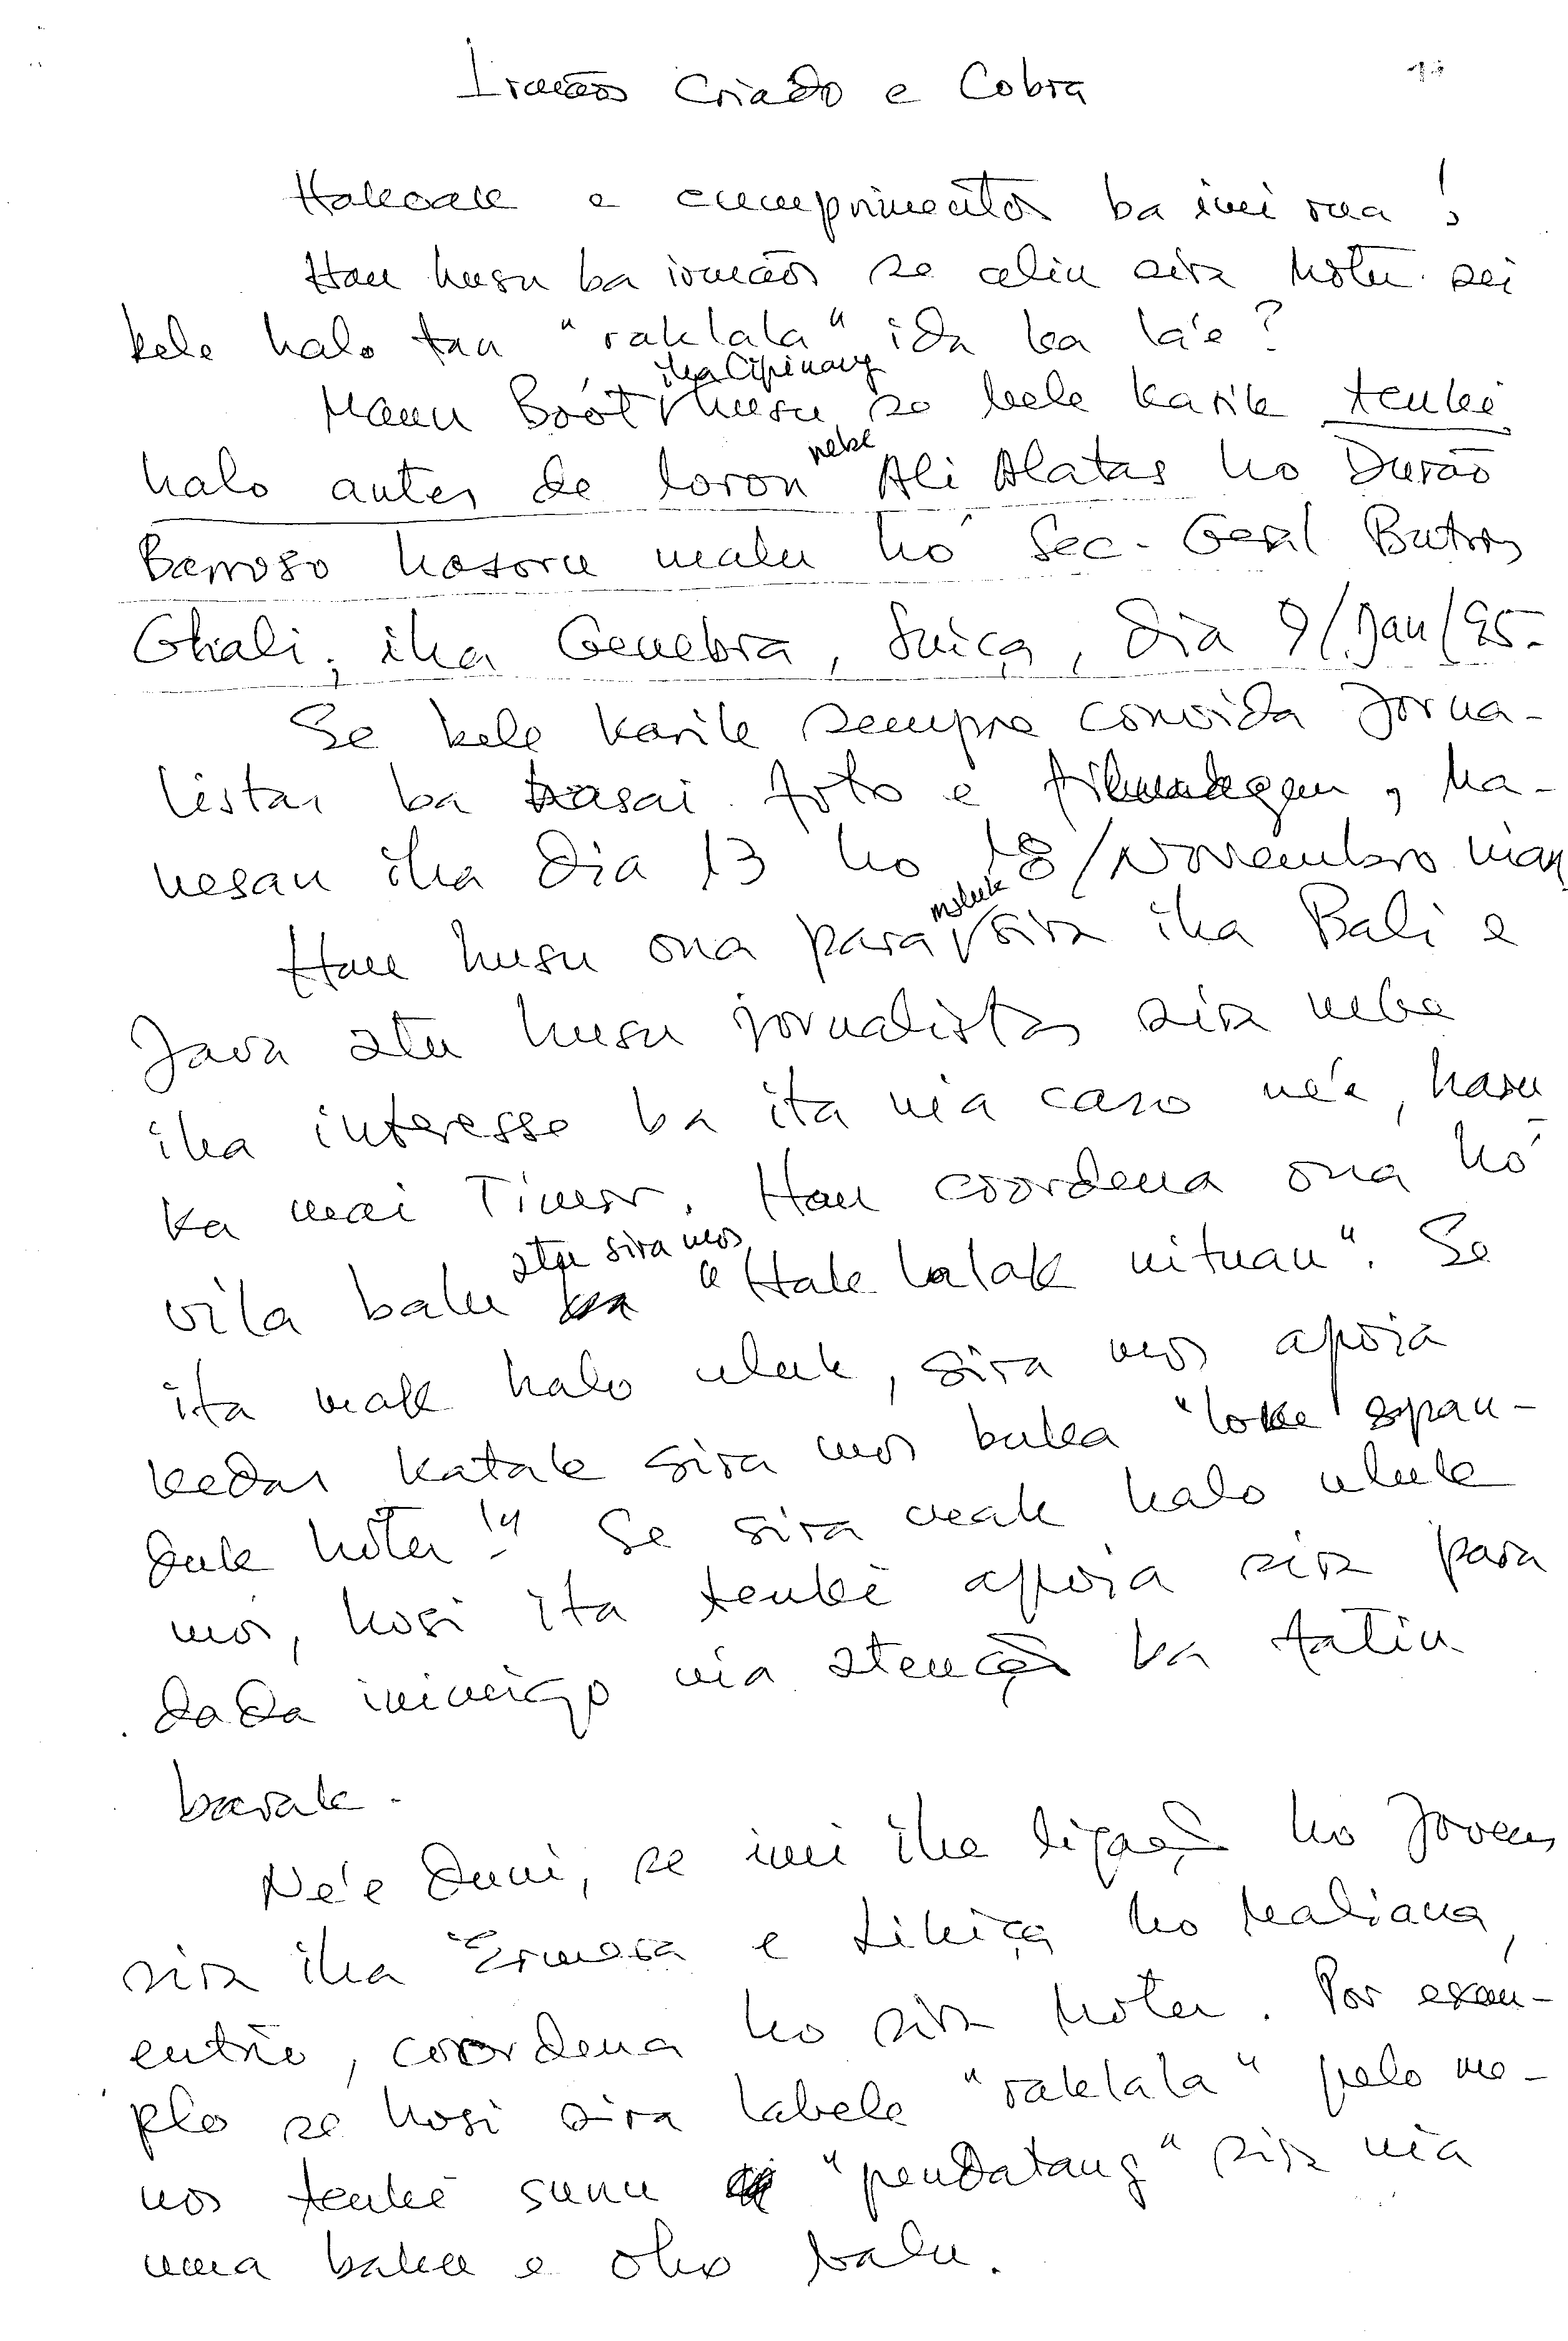 Irmãos Criado e Cobra
Hakoak e cumprimentos ba imi rua!
Hau husu ba irmãos se alin sira hotu sei
bele halo tan "raklala" ida ka la'e?
Maun Bo'ot iha Cipinang husu se bele karik tenke
halo antes de loron nebe Ali Alatas ho Durão
Barroso hasoru malu hó Sec. Geral Butros
Ghali, iha Genebra, Suiça, dia 9/Jan/95.
Se bele karik sempre convida jorna-
listas ba hasai foto e, ha-
nesan iha dia 13 ho 18/Novembro nian
Hau husu ona para maluk sira iha Bali e
Java atu husu jornalistas sira nebe
iha interesse ba ita nia caso ne'e, haru
ka mai Timor. Hau coordena ona hó
vila balu atu sira mos "Hak lalak nituan". Se
ita mak halo uluk, sira mos apoia
kedas katak sira mos buka "loke span-
duk hotu!" Se sira mak halo uluk
mos, hosi ita tenke apoia sira para
dada inimigo nia atenção ba fatin
barak.
Ne'e duni, se imi iha ligação ho jovens
sira iha Ermera e Likiça ho Maliana,
entõo, coordena ho sira hotu. Por exem-
plo se hosi sira labele "raklala" pelo me-
nos tenke sunu "pendatang" sira nia
uma balu e oho balu.